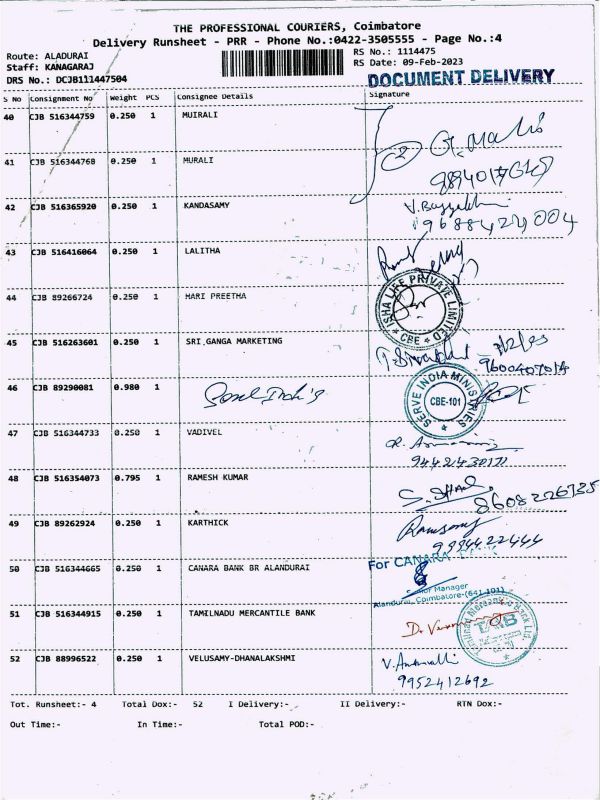 THE PROFESSIONAL COURIERS, Coimbatore
Delivery Runsheet - PRR - Phone No.:0422-3505555 - Page No.:4
Route: ALADURAI
RS No.: 1114475
Staff: KANAGARAJ
RS Date: 09-Feb-2023
DRS No.: DCJB111447504
DOCUMENT DELIVERY
S No Consignment No Weight PCS Consignee Details Signature
40 CJB 516344759 0.250 1 MUIRALI
2
41 CJB 516344768 0.250 1 MURALI
42 CJB 516365920 0.250 1 KANDASAMY
9688424004
43 CJB 516416064 0.250 1 LALITHA
44 CJB 89266724 0.250 1 HARI PREETHA
ISHA LIFE PRIVATE LIMITED
* CBE *
45 CJB 516263601 0.250 1 SRI,GANGA MARKETING
46 CJB 89290081 0.980 1
SERVE INDIA MINISTRIES
CBE-101
47 CJB 516344733 0.250 1 VADIVEL
48 CJB 516354073 0.795 1 RAMESH KUMAR
8608226735
49 CJB 89262924 0.250 1 KARTHICK
9994422444
50 CJB 516344665 0.250 1 CANARA BANK BR ALANDURAI
For CANARA BANK
Senior Manager
Alandurai, Coimbatore-(641 101)
51 CJB 516344915 0.250 1 TAMILNADU MERCANTILE BANK
TMB
52 CJB 88996522 0.250 1 VELUSAMY-DHANALAKSHMI
9952412692
Tot. Runsheet:- 4 Total Dox:- 52 I Delivery:- II Delivery:- RTN Dox:-
Out Time:- In Time:- Total POD:-